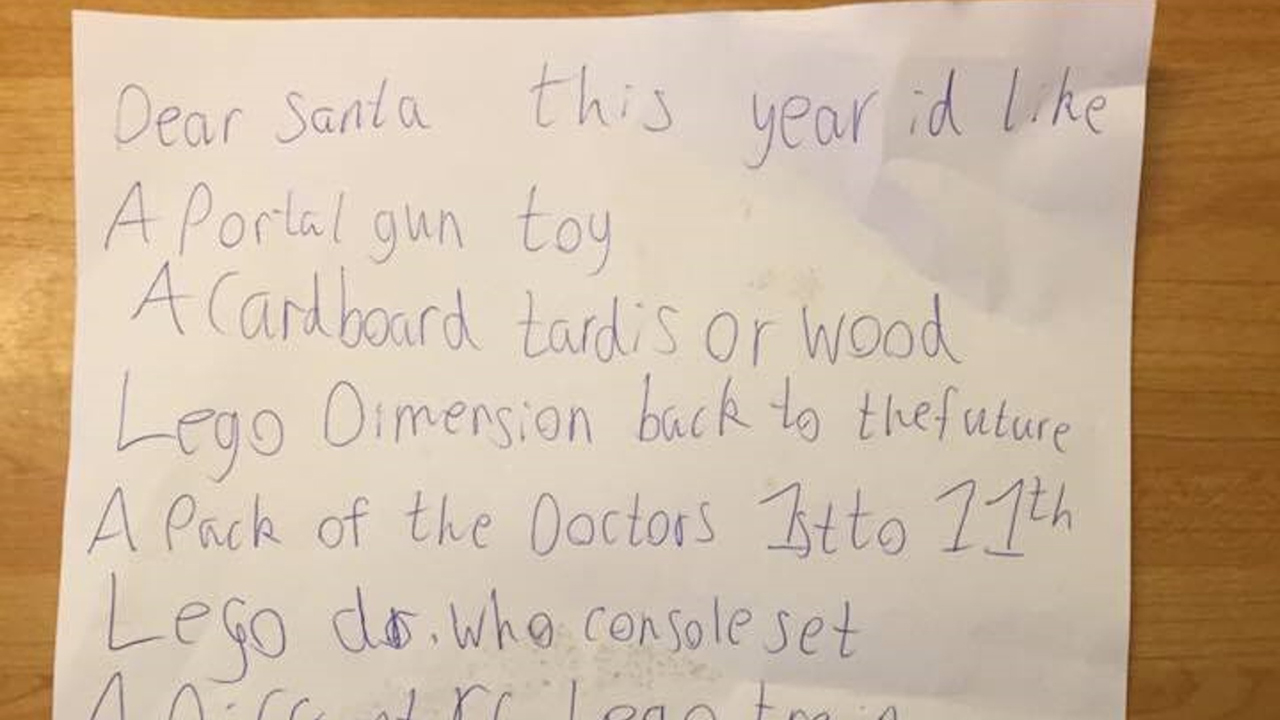 Dear Santa this year id like
A Portal gun toy
A Cardboard tardis or wood
Lego Dimension back to thefuture
A Pack of the Doctors 1st to 11th
Lego dr. who console set
A Lego